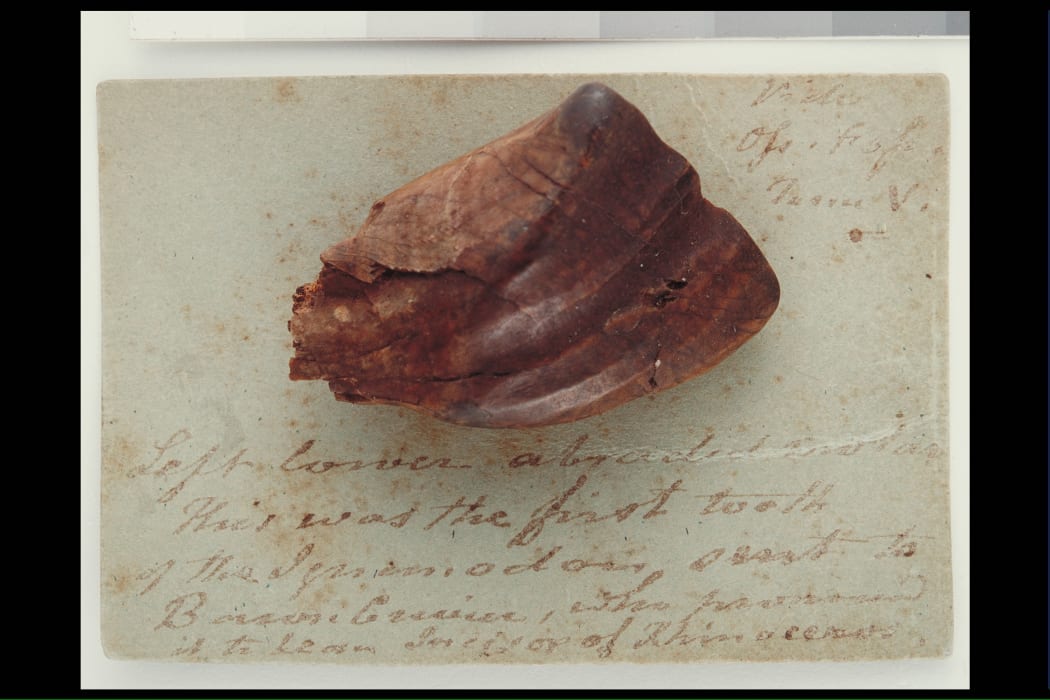 Vide
Oss. Foss.
Tome V.
Left lower abraded molar
This was the first tooth
of the Iguanodon, sent to
Baron Cuvier, who pronounced
it to be an Incisor of Rhinoceros.